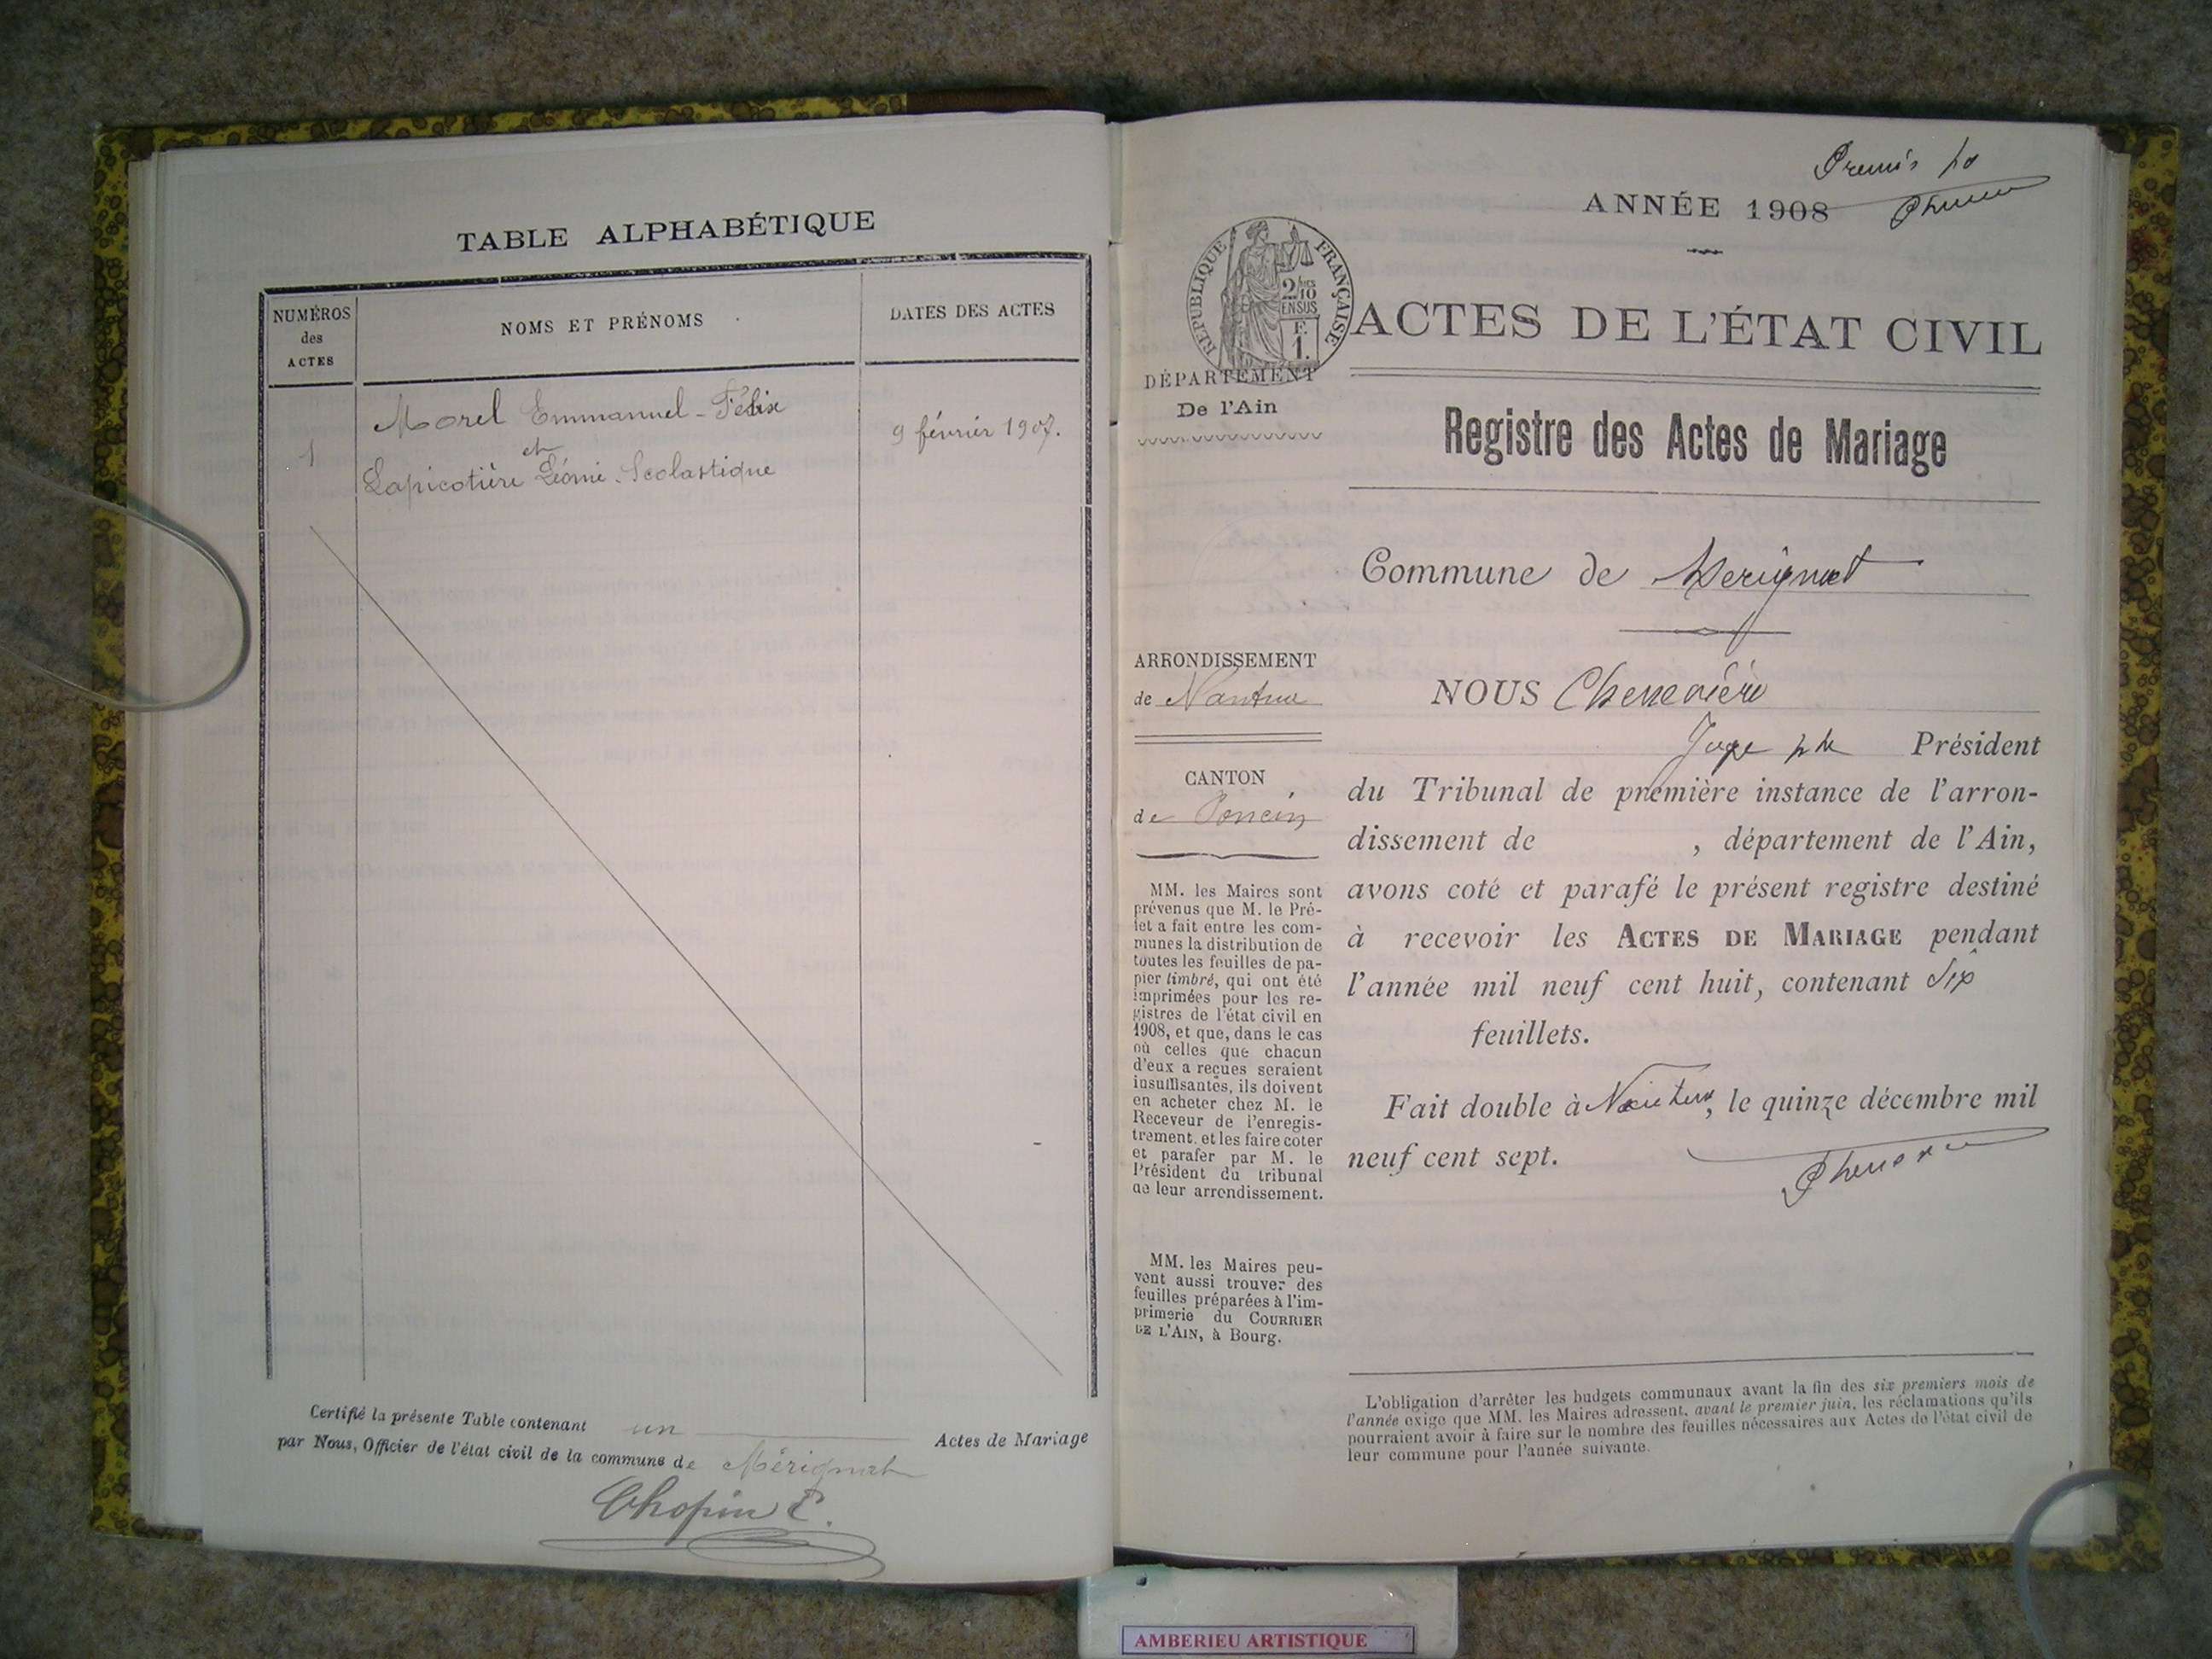 TABLE ALPHABÉTIQUE
NUMÉROS
des
ACTES
NOMS ET PRÉNOMS
DATES DES ACTES
1
Morel Emmanuel-Félix
et
Lapicotière Léonie-Scolastique
9 février 1907.
Certifié la présente Table contenant un Actes de Mariage
par Nous, Officier de l'état civil de la commune de Mérignat
Chopin E.
ANNÉE 1908
RÉPUBLIQUE FRANÇAISE
2/10
EN SUS
F.
1.
ACTES DE L'ÉTAT CIVIL
DÉPARTEMENT
De l'Ain
Registre des Actes de Mariage
Commune de Merignat
ARRONDISSEMENT
de Nantua
CANTON
de Poncin
MM. les Maires sont
prévenus que M. le Pré-
fet a fait entre les com-
munes la distribution de
toutes les feuilles de pa-
pier timbré, qui ont été
imprimées pour les re-
gistres de l'état civil en
1908, et que, dans le cas
où celles que chacun
d'eux a reçues seraient
insuffisantes, ils doivent
en acheter chez M. le
Receveur de l'enregis-
trement, et les faire coter
et parafer par M. le
Président du tribunal
de leur arrondissement.
MM. les Maires peu-
vent aussi trouver des
feuilles préparées à l'im-
primerie du COURRIER
DE L'AIN, à Bourg.
NOUS Chenevière
Juge Président
du Tribunal de première instance de l'arron-
dissement de , département de l'Ain,
avons coté et parafé le présent registre destiné
à recevoir les ACTES DE MARIAGE pendant
l'année mil neuf cent huit, contenant Six
feuillets.
Fait double à Nantua, le quinze décembre mil
neuf cent sept.
L'obligation d'arrêter les budgets communaux avant la fin des six premiers mois de
l'année exige que MM. les Maires adressent, avant le premier juin, les réclamations qu'ils
pourraient avoir à faire sur le nombre des feuilles nécessaires aux Actes de l'état civil de
leur commune pour l'année suivante.
AMBERIEU ARTISTIQUE